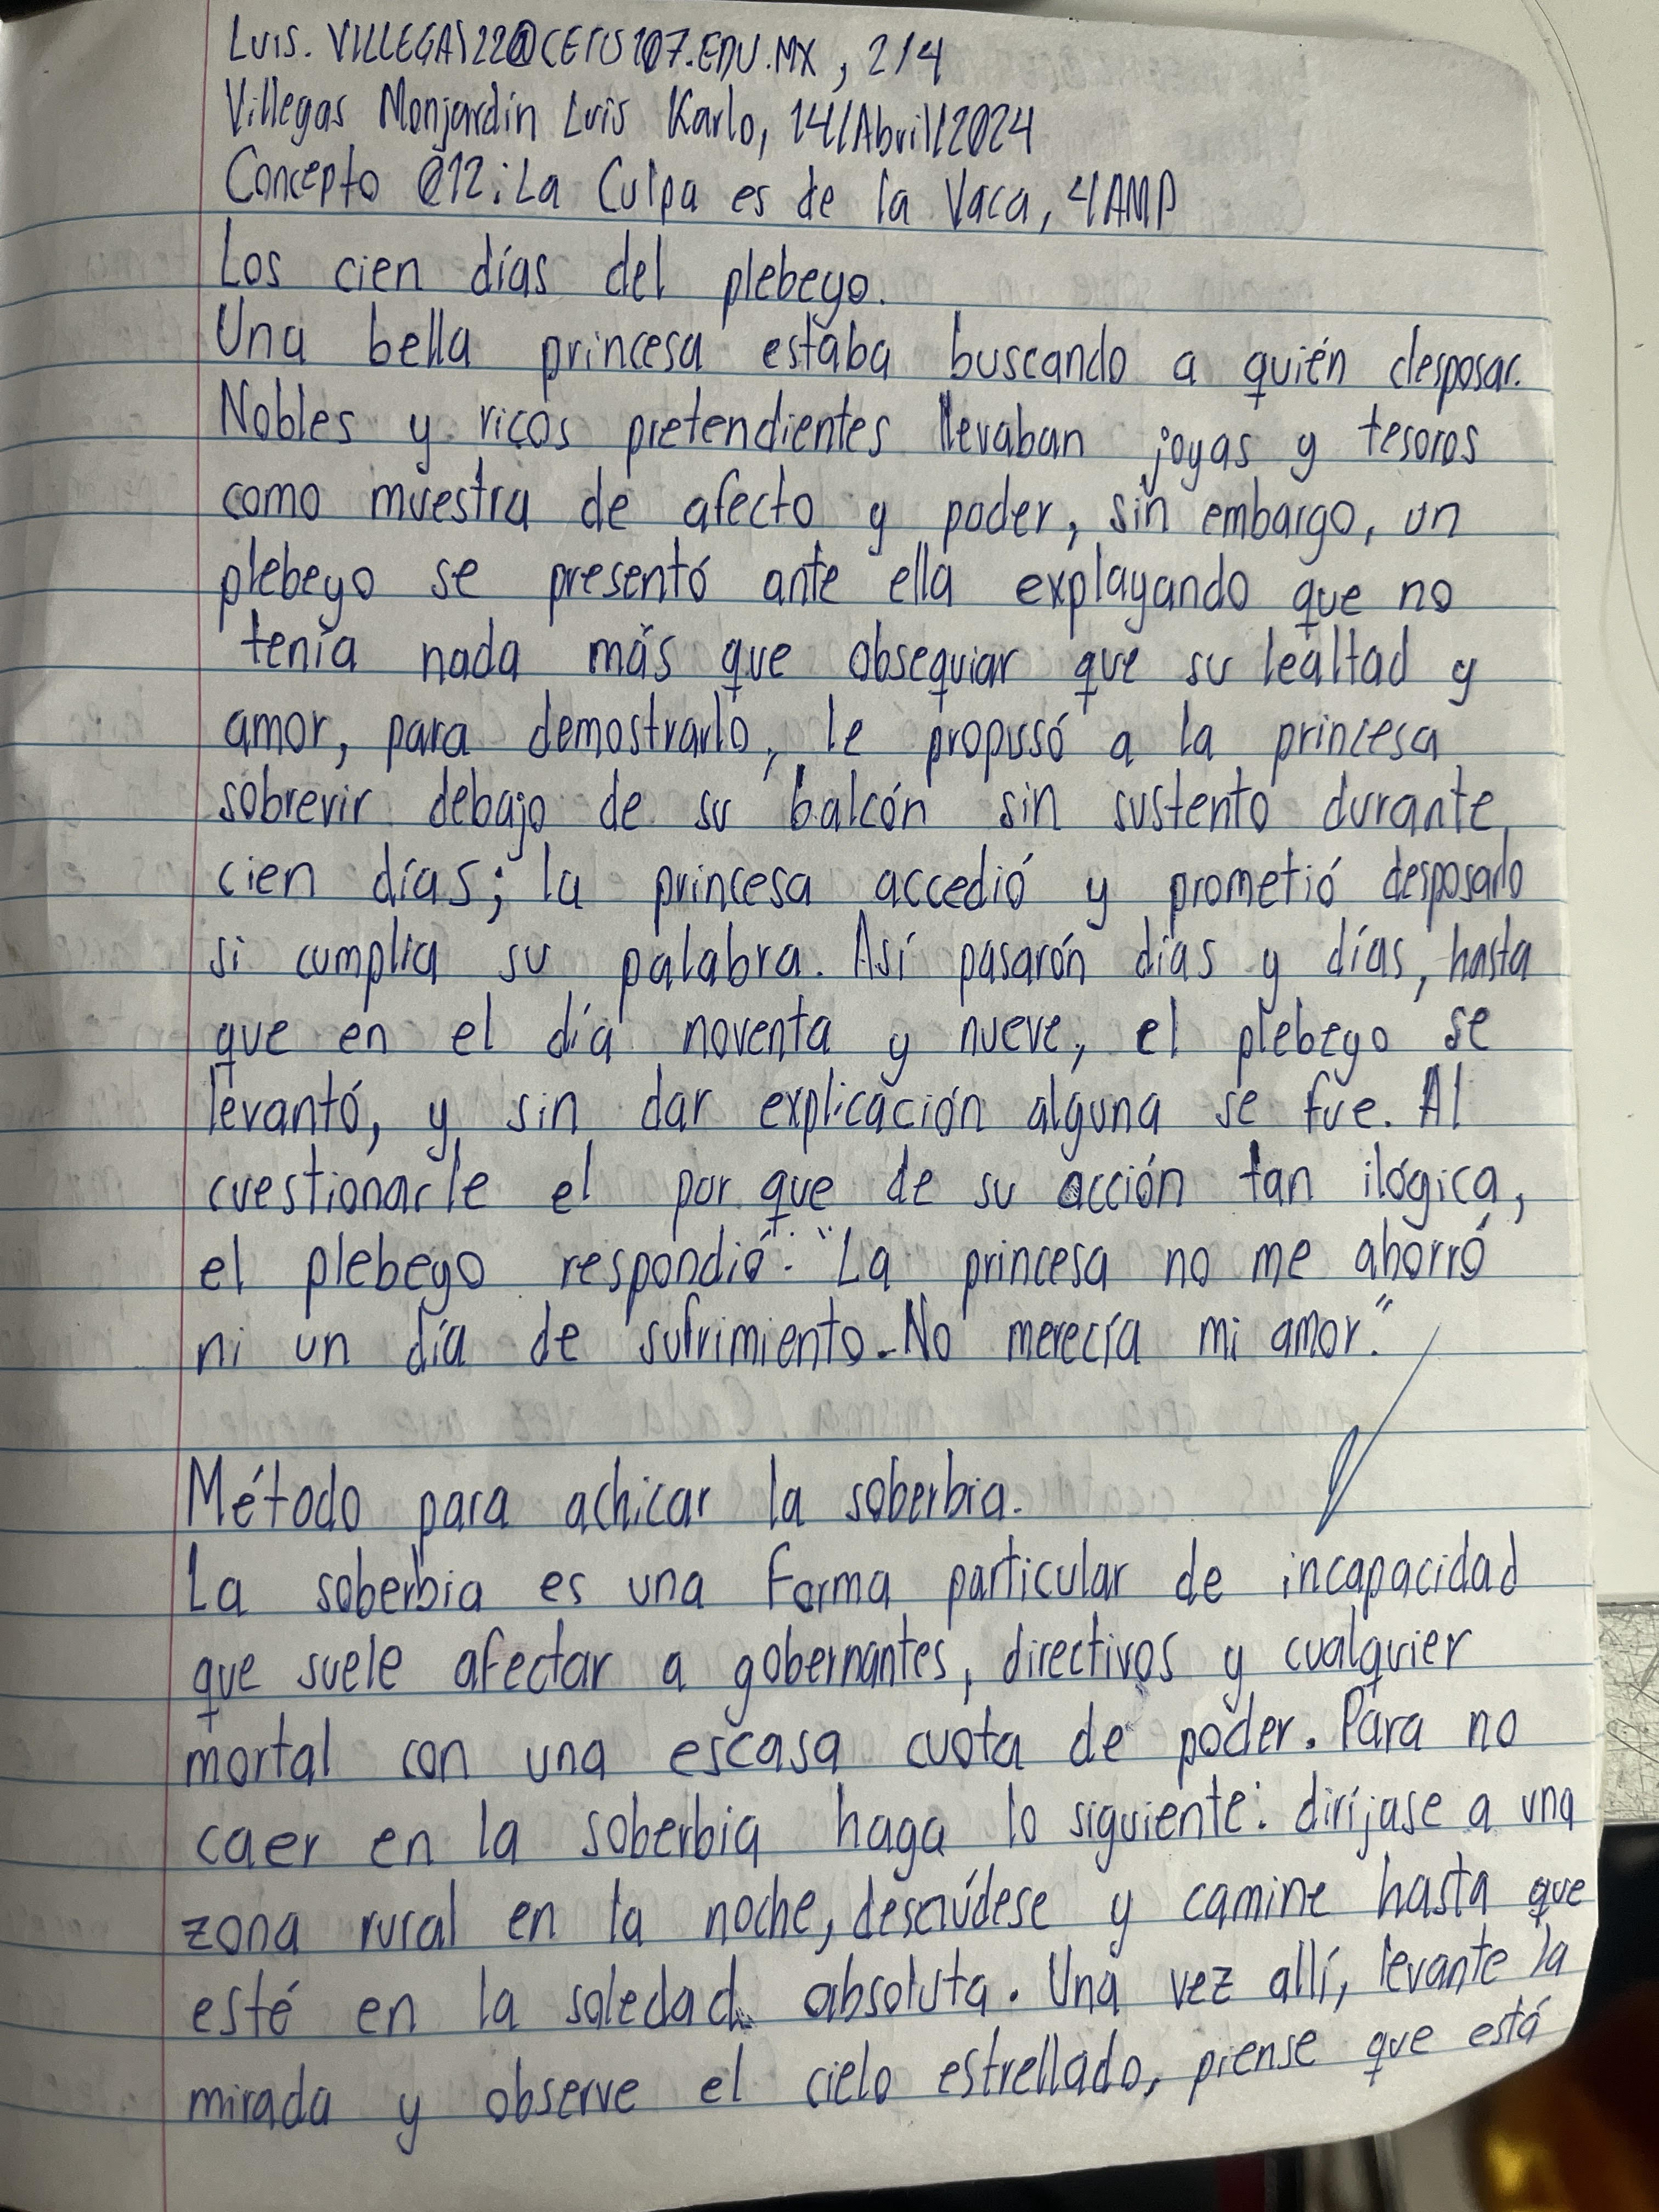 LUIS.VILLEGAS22@CETIS107.EDU.MX, 2/4
Villegas Monjardin Luis Karlo, 14/Abril/2024
Concepto @12: La Culpa es de la Vaca, 4AMP
Los cien días del plebeyo.
Una bella princesa estaba buscando a quién desposar.
Nobles y ricos pretendientes llevaban joyas y tesoros
como muestra de afecto y poder, sin embargo, un
plebeyo se presentó ante ella explayando que no
tenía nada más que obsequiar que su lealtad y
amor, para demostrarlo, le propusó a la princesa
sobrevir debajo de su balcón sin sustento durante
cien días; la princesa accedió y prometió desposarlo
si cumplia su palabra. Así pasarón días y días, hasta
que en el día noventa y nueve, el plebeyo se
levantó, y sin dar explicación alguna se fue. Al
cuestionarle el por que de su acción tan ilógica,
el plebeyo respondió: "La princesa no me ahorró
ni un día de sufrimiento. No merecía mi amor."
Método para achicar la soberbia.
La soberbia es una forma particular de incapacidad
que suele afectar a gobernantes, directivos y cualquier
mortal con una escasa cuota de poder. Para no
caer en la soberbia haga lo siguiente: diríjase a una
zona rural en la noche, desnúdese y camine hasta que
esté en la soledad absoluta. Una vez allí, levante la
mirada y observe el cielo estrellado, piense que está